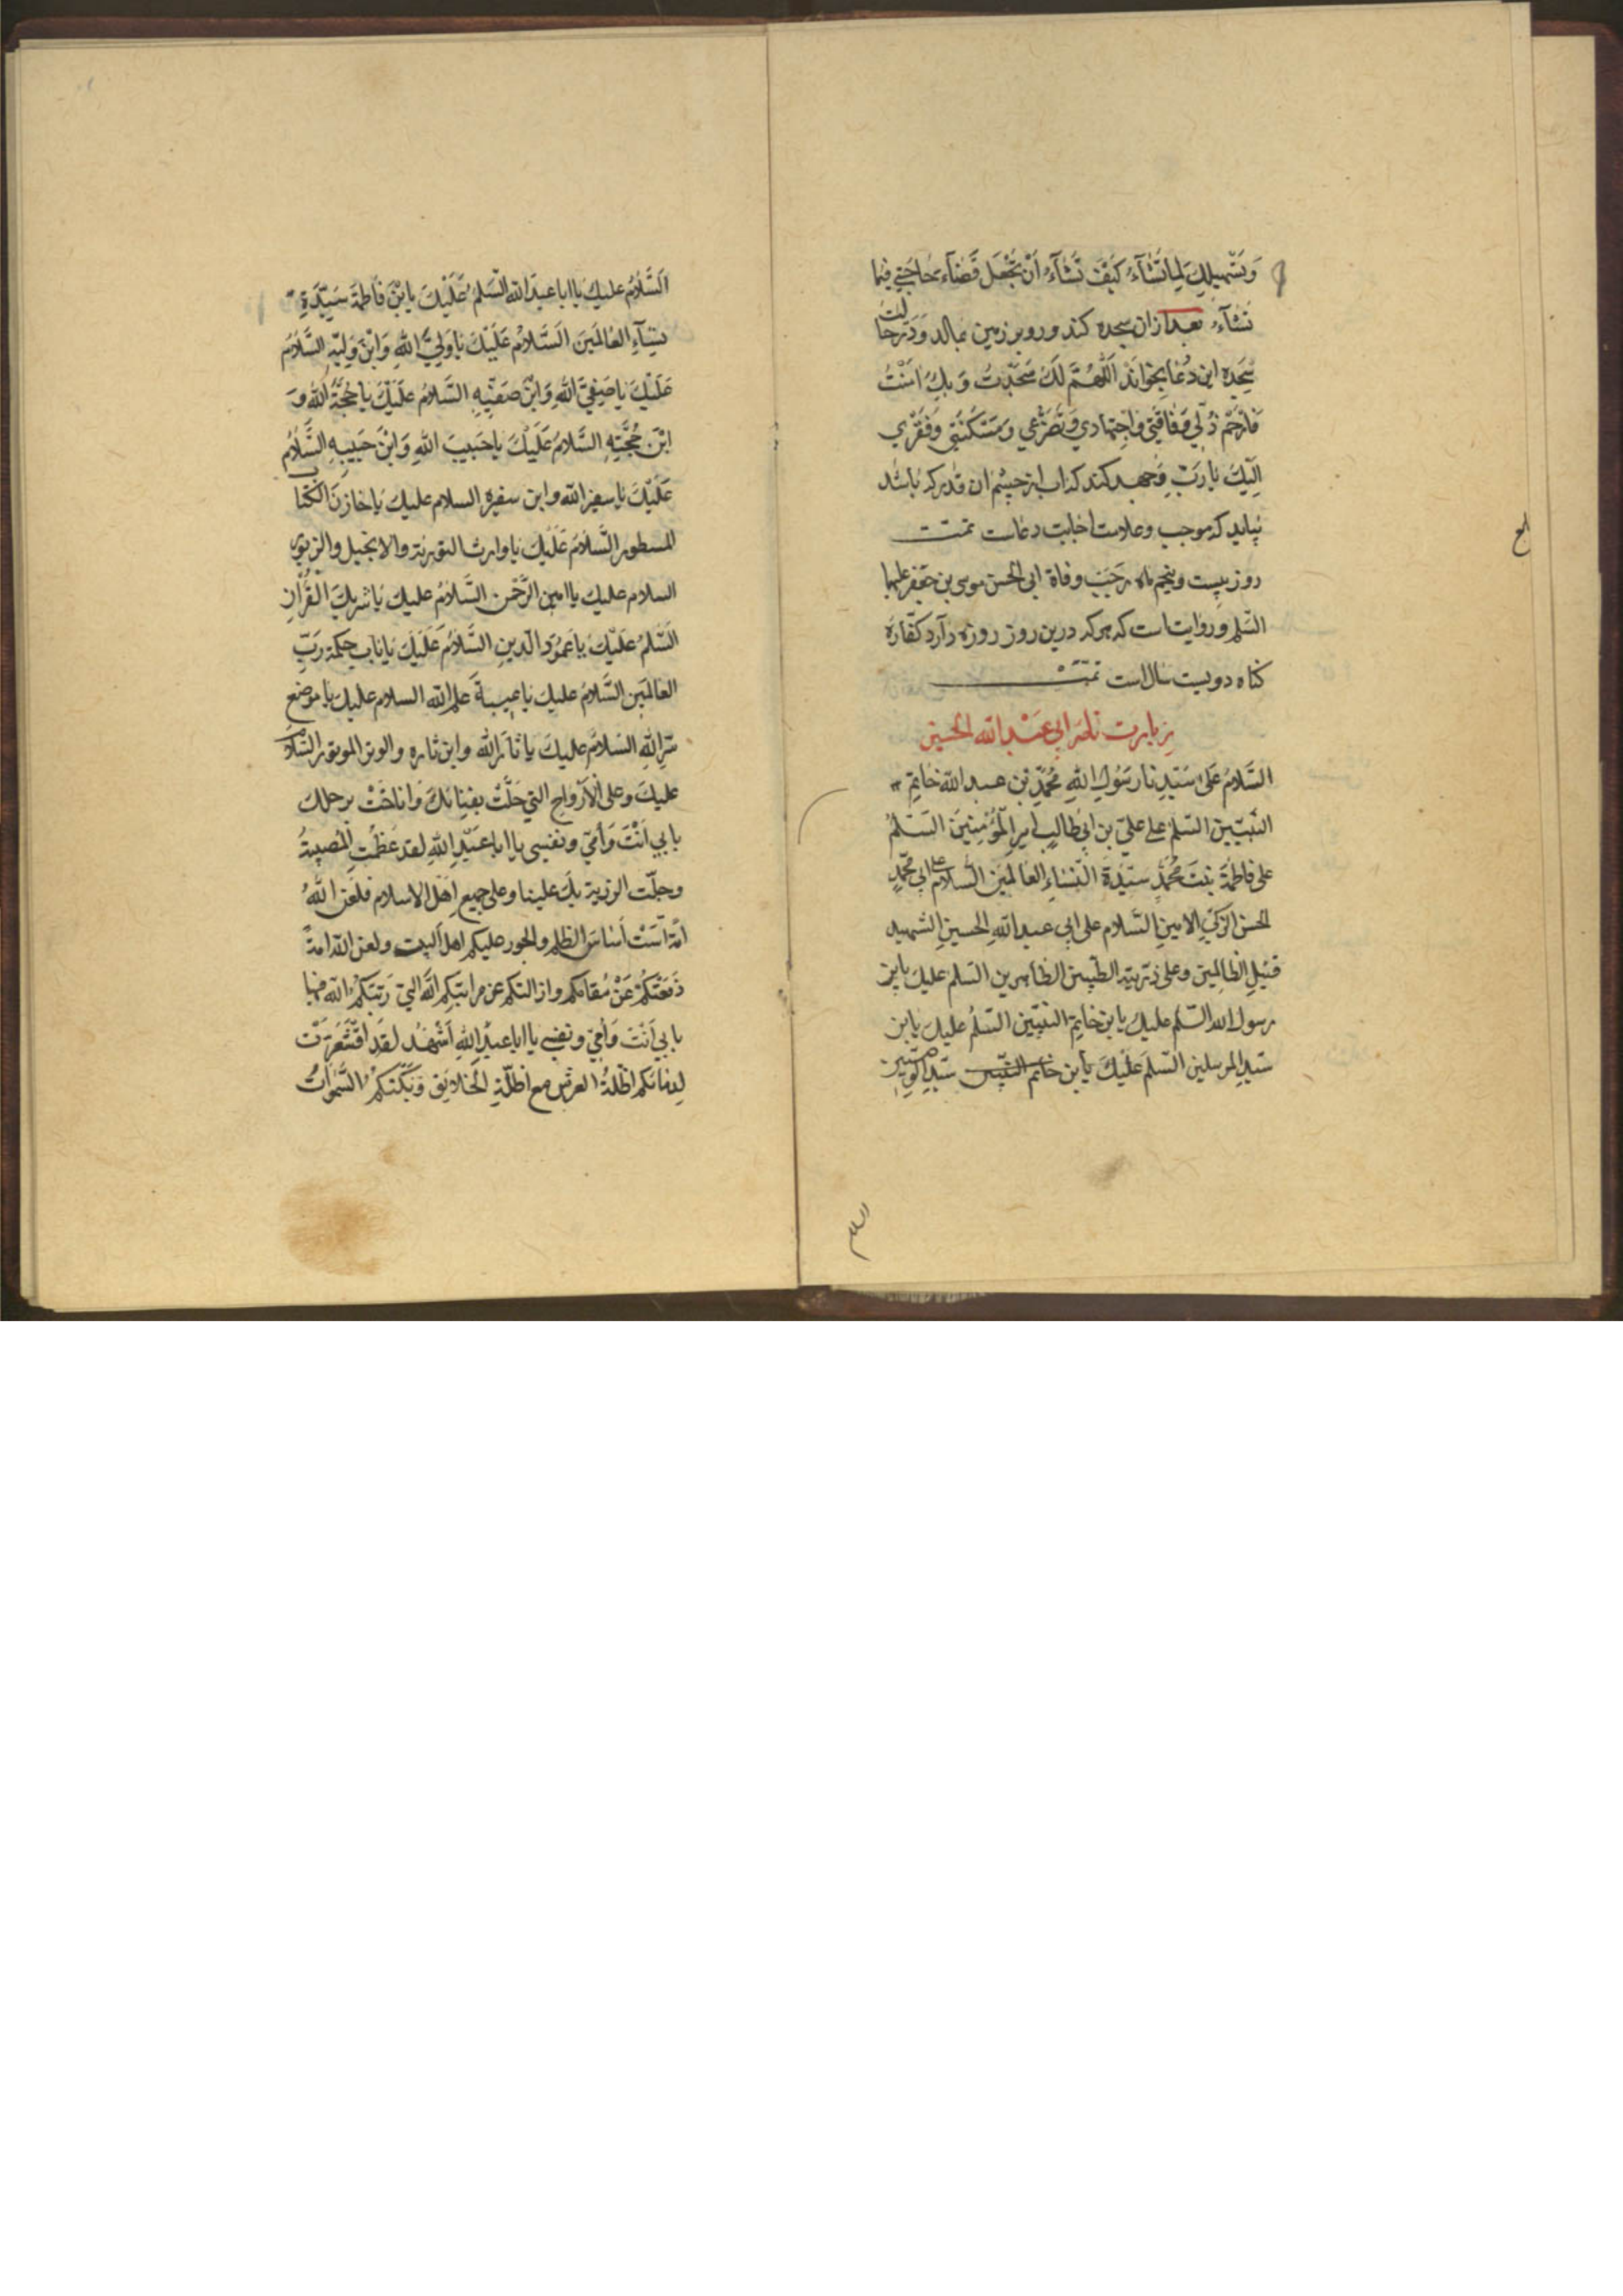 وَتَسْهِیلِكَ لِمَا تَشَآءُ كَیْفَ تَشَآءُ اَنْ تَجْعَلَ قَضَآءَ حَاجَتِي فِیمَا
تَشَآءُ بعد ازان سجده كند و روی بر زمین بمالد وَ دَر حالت
سَجده این دُعا بخوانَد اَللّٰهُمَّ لَكَ سَجَدْتُ وَ بِكَ اٰمَنْتُ
فَارْحَمْ ذُلِّي وَفَاقَتِي وَاجْتِهَادِي وَتَضَرُّعِي وَمَسْكَنَتِي وَفَقْرِي
اِلَیْكَ یَا رَبِّ وَجهد كند كه اب از چشم ان قدر كه باشد
بیاید كه موجب وعلامت اجابت دعاست تمت
روز بیست وپنجم ماه رجب وفاة ابی الحسن موسی بن جعفر علیهما
السّلم وروایتاست كه هر كه درین روز روزه دارد كفّاره
كناه دویست سال است تمّت
زیارت ناحر ابی عَبْد الله الحسین
السَّلامُ عَلیٰ سَیّدِنا رَسُولِ اللهِ مُحَمَّدِ بْنِ عبد اللهِ خَاتِمِ
النَّبِیّینَ السّلمُ علی علیِّ بن ابی طالبٍ امیرِ الْمُؤْمِنِینَ السّلمُ
علی فاطمةَ بنتِ مُحَمَّدٍ سَیّدةَ النّساءِ العَالَمِینَ السّلامُ علی ابی محَمَّدٍ
الحسنِ الزّكیِّ الامینِ السّلام علی ابی عبد اللهِ الحسینِ الشهید
قتیلِ الظالِمین وعلی ذرّیته الطّیبین الطّاهرین السّلم علیك یابن
رسول الله السّلم علیكَ یا بن خاتِمِ النّبیّین السّلمُ علیك یابن
سیّدِ المرسلین السّلم عَلَیْكَ یابن خاتم النّبیّین سیّد الوصیّین
لح
السلم
اَلسَّلامُ علیكَ یا ابا عبدَ الله السّلمُ عَلَیْكَ یا بْنَ فاطمةَ سَیِّدَةِ
نِسَآءِ العَالَمِینَ السَّلامُ عَلَیْكَ یَا وَلِیَّ اللهِ وَابْنَ وَلِیّهِ السَّلامُ
عَلَیْكَ یا صَفِیَّ اللهِ وَابْنَ صَفِیِّهِ السَّلامُ عَلَیْكَ یا حُجَّةَ اللهِ وَ
ابْنَ حُجَّتِهِ السَّلامُ عَلَیْكَ یا حَبیبَ اللهِ وَابْنَ حَبیبِهِ السَّلامُ
عَلَیْكَ یا سفیر الله وابن سفیره السلام علیك یا خازنَ الكتاب
المسطور السَّلامُ عَلَیْكَ یا وارث التوریة والانجیل والزبور
السلام علیك یا امین الرّحمن السَّلامُ علیك یا شریكَ القُرْاٰنِ
السّلمُ عَلَیْكَ یا عَمُودَ الدّینِ السَّلامُ عَلَیْكَ یا بابَ حِكمة رَبِّ
العالَمِین السَّلامُ علیكَ یا عیبةَ علم الله السلام علیك یا موضع
سرّ اللهِ السَلامُ علیكَ یا ثاَرَ الله وابن ثاره والوتر الموتور السّلامُ
علیكَ وعلی الْاَرْوَاحِ التي حَلَّتْ بفِنائِكَ وَاَناخَتْ برحلك
بابي اَنْتَ وَاُمّي ونفسی یا ابا عَبْدِ اللهِ لقد عَظُمَتِ المُصیبةُ
وجلّت الرزیة بكَ علینا وعلی جمیعِ اَهْلِ الاسلام فلعَن اللهُ
امّة اَسّسَتْ اَساسَ الظلم والجور علیكم اهل البیت ولعن الله امةً
دَفَعَتْكُمْ عَنْ مقامكم وازالتكم عن مراتبِكم الّتي رَتّبَكُمُ الله فیها
بابي اَنْتَ وَاُمّي ونفسي یا ابا عبدِ اللهِ اَشْهَدُ لقَد اقْشَعَرَّتْ
لِدِمائكم اَظِلَّةُ العرش مع اظلّةِ الخلایق وَبَكَتْكُمُ السَّمواتُ